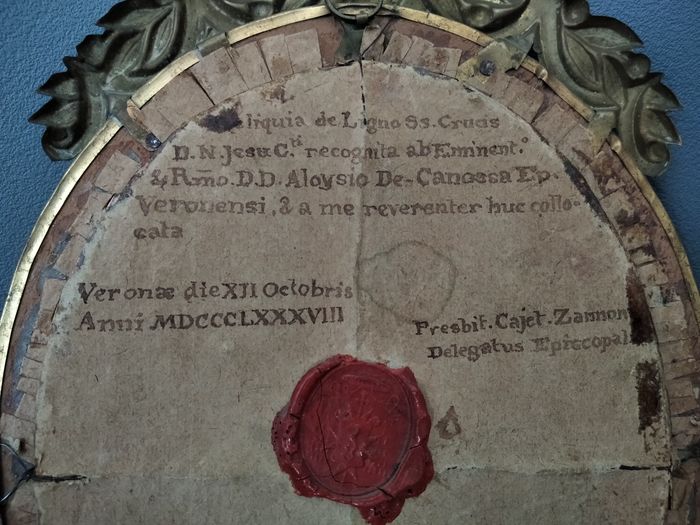 liquia de Ligno Ss. Crucis
D. N. Jesu C.ti recognita ab Eminent.º
& R͞mo. D. D. Aloysio De-Canossa Ep.
Veronensi, & a me reverenter huc collo-
cata
Veronæ die XII Octobris
Anni MDCCCLXXXVIII
Presbit. Cajet. Zannon
Delegatus Episcopal